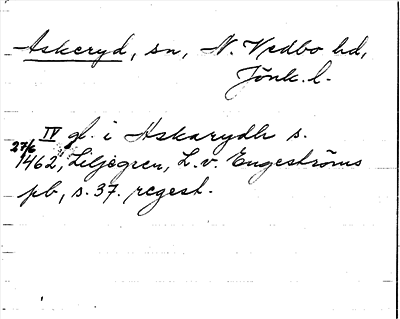 Askeryd, sn, N. Vedbo hd,
Jönk. l.
IV gl. i Askarydh s.
27/6 1462, Liljegren, L. v. Engeströms
pb, s. 37. regest.